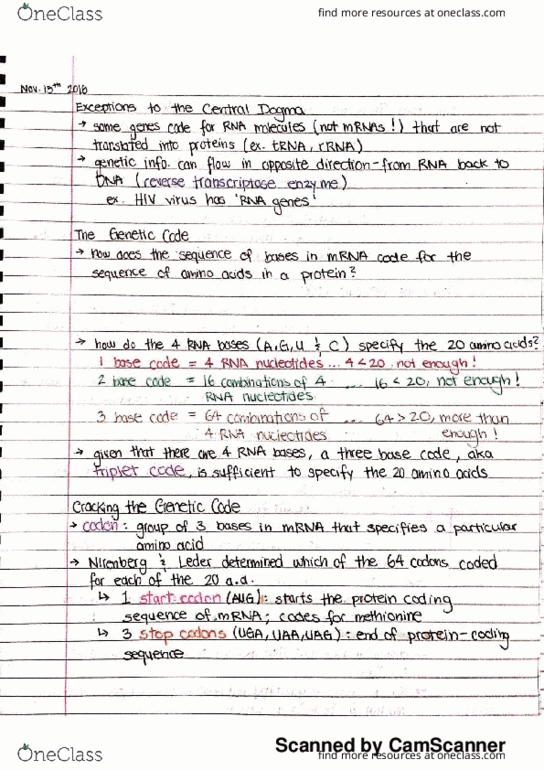 OneClass
find more resources at oneclass.com
Nov. 15th 2016
Exceptions to the Central Dogma
→ some genes code for RNA molecules (not mRNAs!) that are not
translated into proteins (ex. tRNA, rRNA)
→ genetic info. can flow in opposite direction - from RNA back to
DNA (reverse transcriptase enzyme)
ex. HIV virus has 'RNA genes'
The Genetic Code
→ how does the sequence of bases in mRNA code for the
sequence of amino acids in a protein?
→ how do the 4 RNA bases (A,G,U & C) specify the 20 amino acids?
1 base code = 4 RNA nucleotides ... 4 < 20 not enough!
2 base code = 16 combinations of 4 .... 16 < 20, not enough!
RNA nucleotides
3 base code = 64 combinations of ... 64 > 20, more than
4 RNA nucleotides enough!
→ given that there are 4 RNA bases, a three base code, aka
triplet code, is sufficient to specify the 20 amino acids
Cracking the Genetic Code
→ codon: group of 3 bases in mRNA that specifies a particular
amino acid
→ Nirenberg & Leder determined which of the 64 codons coded
for each of the 20 a.a.
↳ 1 start codon (AUG): starts the protein coding
sequence of mRNA; codes for methionine
↳ 3 stop codons (UGA, UAA, UAG): end of protein-coding
sequence
Scanned by CamScanner
OneClass
find more resources at oneclass.com